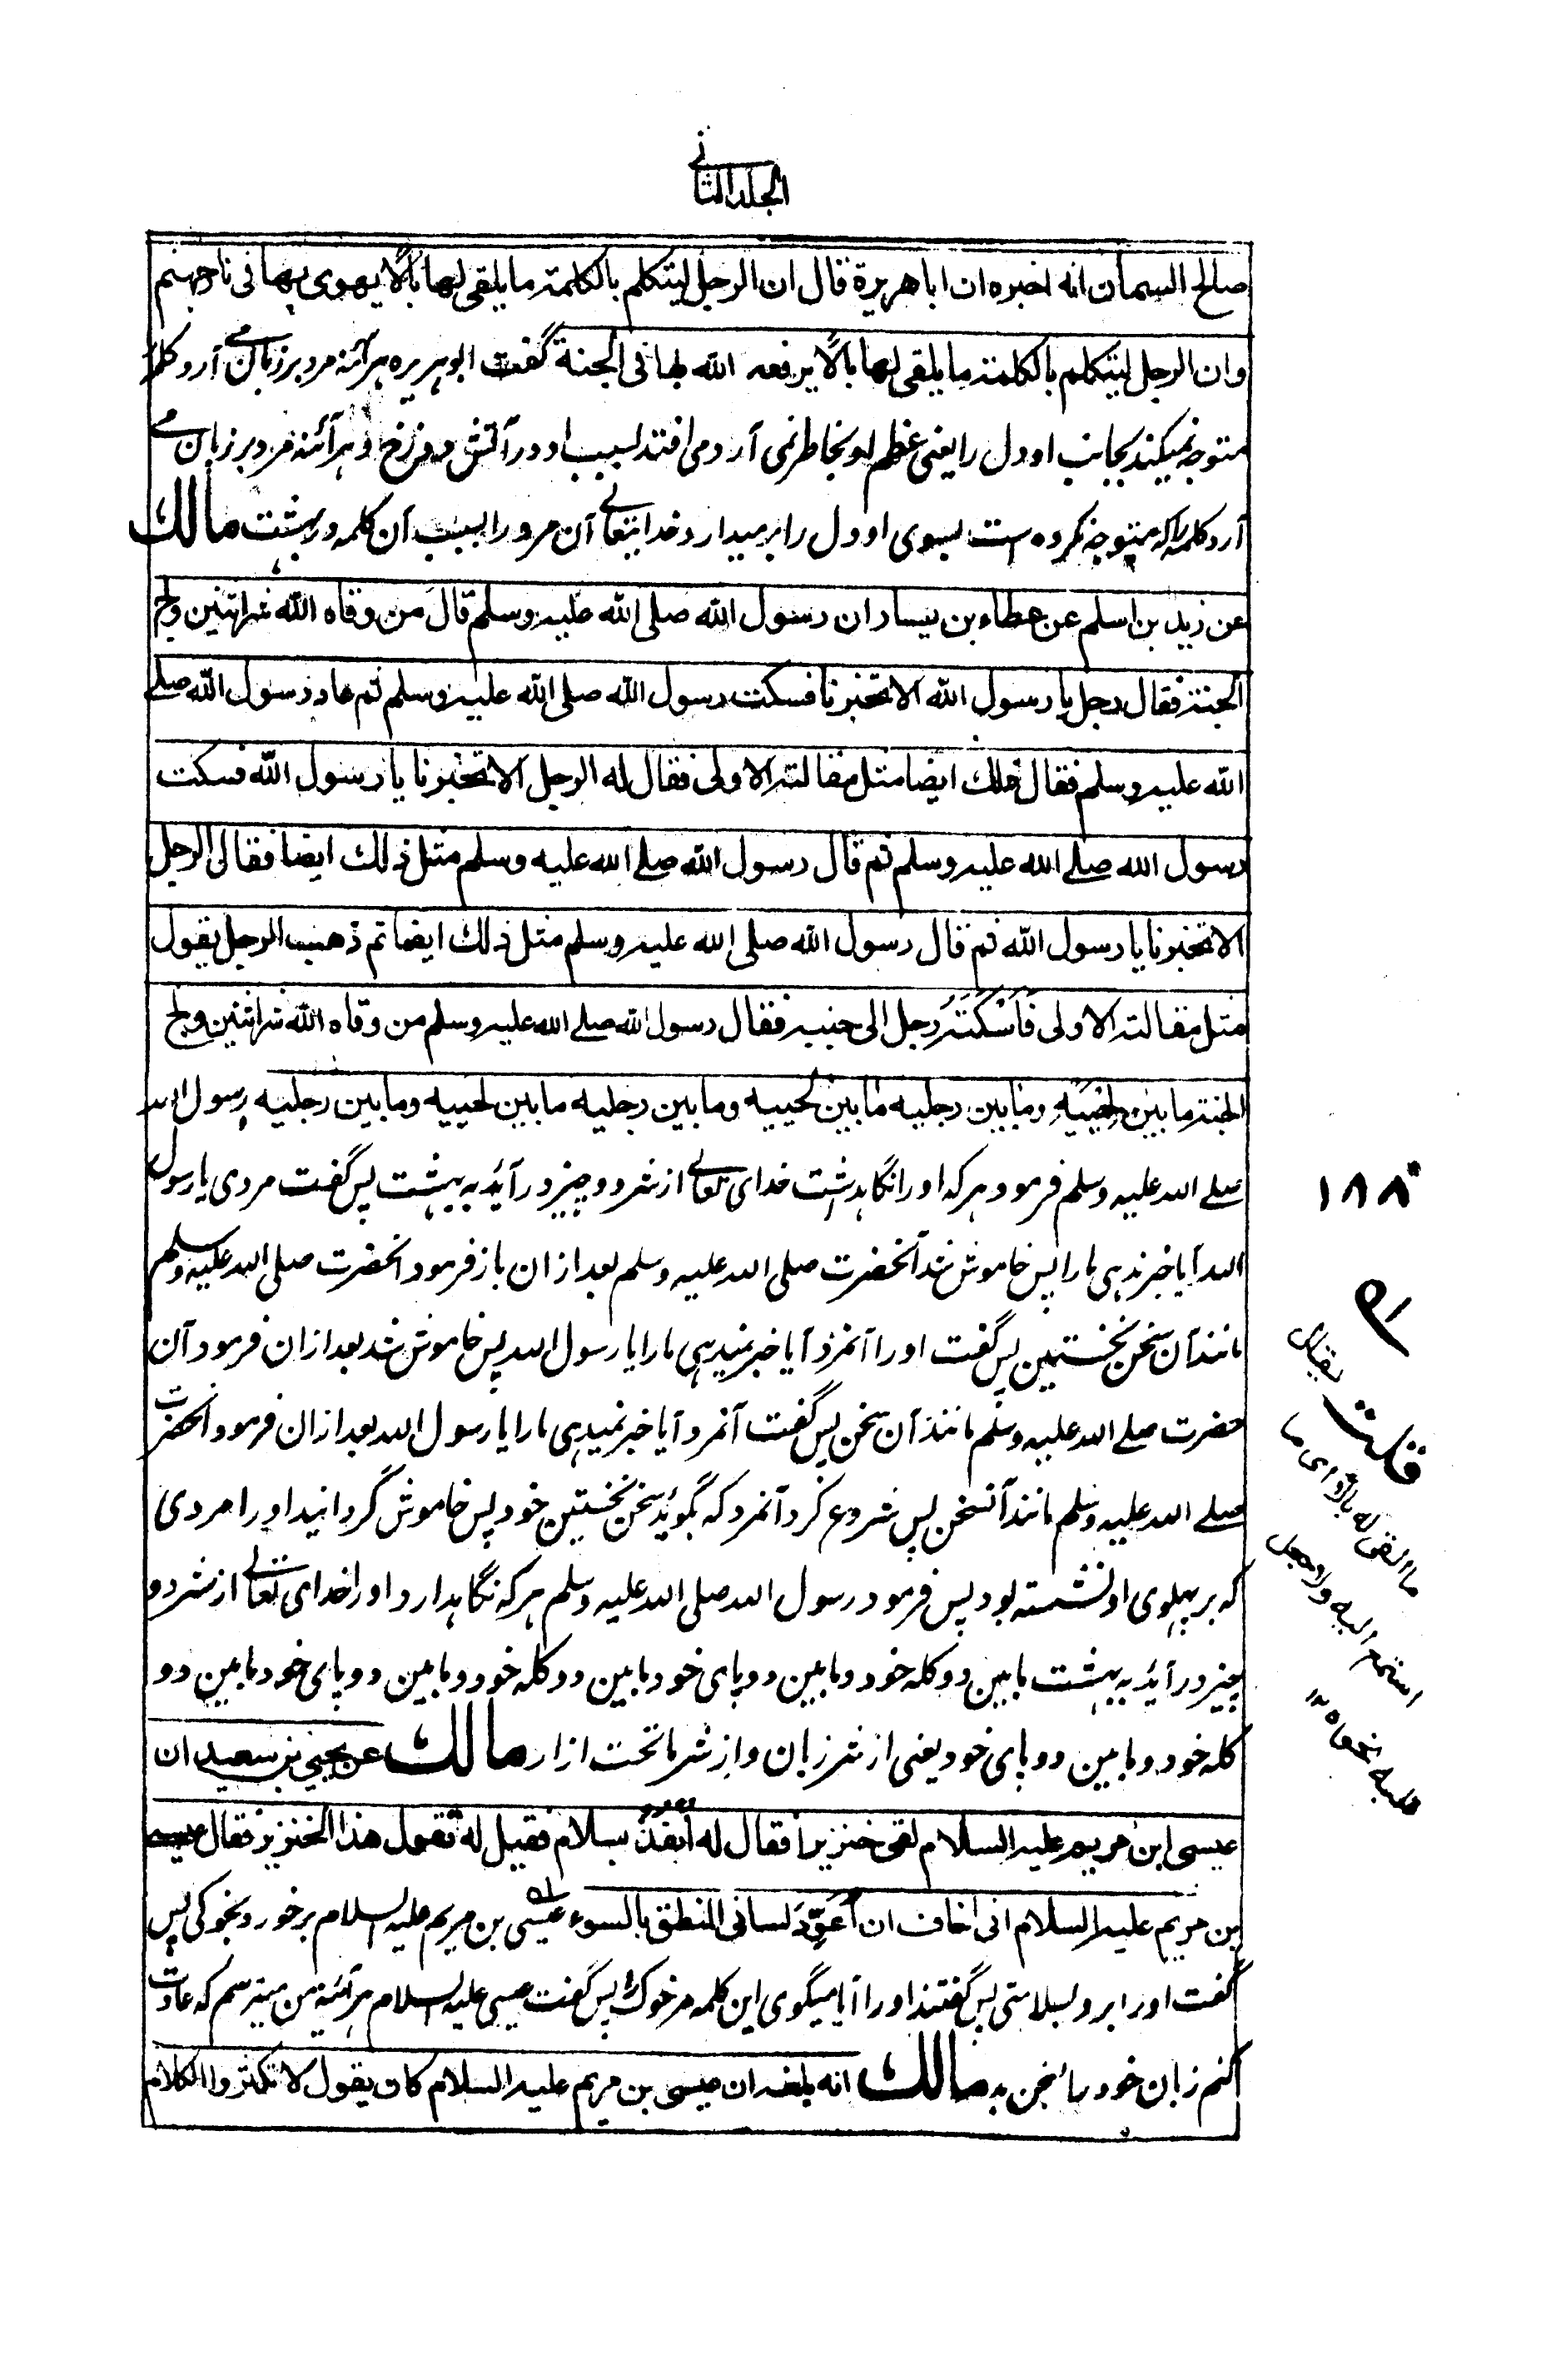 الجلد الثانی
صالح السمان انه اخبره ان ابا هريرة قال ان الرجل ليتكلم بالكلمة ما يلقي لها بالًا يهوی بها فی نار جهنم
وان الرجل ليتكلم بالكلمة ما يلقی لها بالًا يرفعه الله بها فی الجنة گفت ابوہریرہ ہرآئنہ مرد بر زبان می آرد کلمہ
متوجہ نمیکند بجانب او دل را یعنی عظم او بخاطر نمی آرد می افتد بسبب او در آتش دوزخ و ہر آئنہ مرد بر زبان می
آرد کلمہ را کہ متوجہ نکردہ است بسوی او دل را برمیدارد خدایتعالے آن مرد را بسبب آن کلمہ در بہشت مالك
عن زيد بن اسلم عن عطاء بن يسار ان رسول الله صلی الله عليه وسلم قال من وقاه الله شر اثنين ولج
الجنة فقال رجل يا رسول الله الا تخبرنا فسكت رسول الله صلی الله عليه وسلم ثم عاد رسول الله صلے
الله عليه وسلم فقال ذلك ايضا مثل مقالته الاولی فقال له الرجل الا تخبرنا يا رسول الله فسكت
رسول الله صلے الله عليه وسلم ثم قال رسول الله صلے الله عليه وسلم مثل ذلك ايضا فقال الرجل
الا تخبرنا يا رسول الله ثم قال رسول الله صلی الله عليه وسلم مثل ذلك ايضا ثم ذهب الرجل يقول
مثل مقالته الاولی فَأَسْكَتَهُ رجل الی جنبه فقال رسول الله صلے الله عليه وسلم من وقاه الله شر اثنين ولج
الجنة ما بين لحييه وما بين رجليه ما بين لحييه وما بين رجليه ما بين لحييه وما بين رجليه رسول اللہ
صلے اللہ علیہ وسلم فرمود ہر کہ او را نگاہداشت خدای تعالے از شر دو چیز در آید بہ بہشت پس گفت مردی یا رسول
اللہ آیا خبر ندہی ما را پس خاموش شد آنحضرت صلی اللہ علیہ وسلم بعد ازان باز فرمود آنحضرت صلی اللہ علیہ وسلم
مانند آن سخن نخستین پس گفت او را آنمرد آیا خبر نمیدہی ما را یا رسول اللہ پس خاموش شد بعد ازان فرمود آن
حضرت صلے اللہ علیہ وسلم مانند آن سخن پس گفت آنمرد آیا خبر نمیدہی ما را یا رسول اللہ بعد ازان فرمود آنحضرت
صلے اللہ علیہ وسلم مانند آنسخن پس شروع کرد آنمرد کہ بگوید سخن نخستین خود پس خاموش گردانید او را مردی
کہ بر پہلوی او نشستہ بود پس فرمود رسول اللہ صلی اللہ علیہ وسلم ہر کہ نگاہدارد او را خدای تعالے از شر دو
چیز در آید بہ بہشت مابین دو کلہ خود و مابین دو پای خود مابین دو کلہ خود و مابین دو پای خود مابین دو
کلہ خود و مابین دو پای خود یعنی از شر زبان و از شر ماتحت ازار مالك عن يحيی بن سعيد ان
عيسی ابن مريم عليه السلام لقی خنزيرا فقال له اُنفُذ بسلام فقيل له تقول هذا الخنزير فقال عيسی
بن مريم عليه السلام انی اخاف ان أُعَوِّدَ لسانی المنطق بالسوء عیسی بن مریم علیہ السلام برخورد بخوکی پس
گفت او را برو بسلامتی پس گفتند او را آیا میگوی این کلمہ مر خوک پس گفت عیسی علیہ السلام ہر آئنہ من میترسم کہ عادت
کنم زبان خود را سخن بد مالك انه بلغه ان عيسی بن مريم عليه السلام كان يقول لا تكثروا الكلام
۱۸۸
قلت
يقال
ما القی له بالًا ای ما
استمع اليه ولا جعل
قلبه نحوه ۱۲